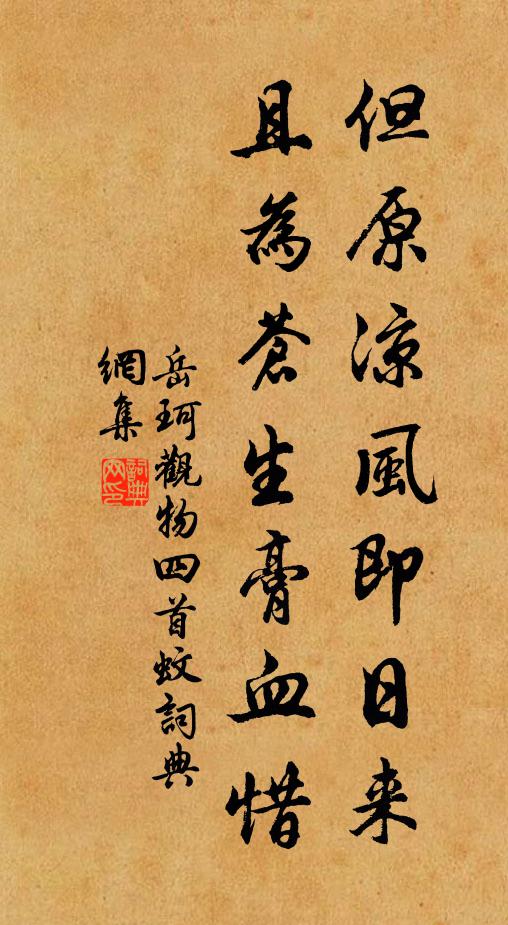 但原涼風即日来
且為蒼生膏血惜
岳珂觀物四首蚊詞典
網集
詞典
网印